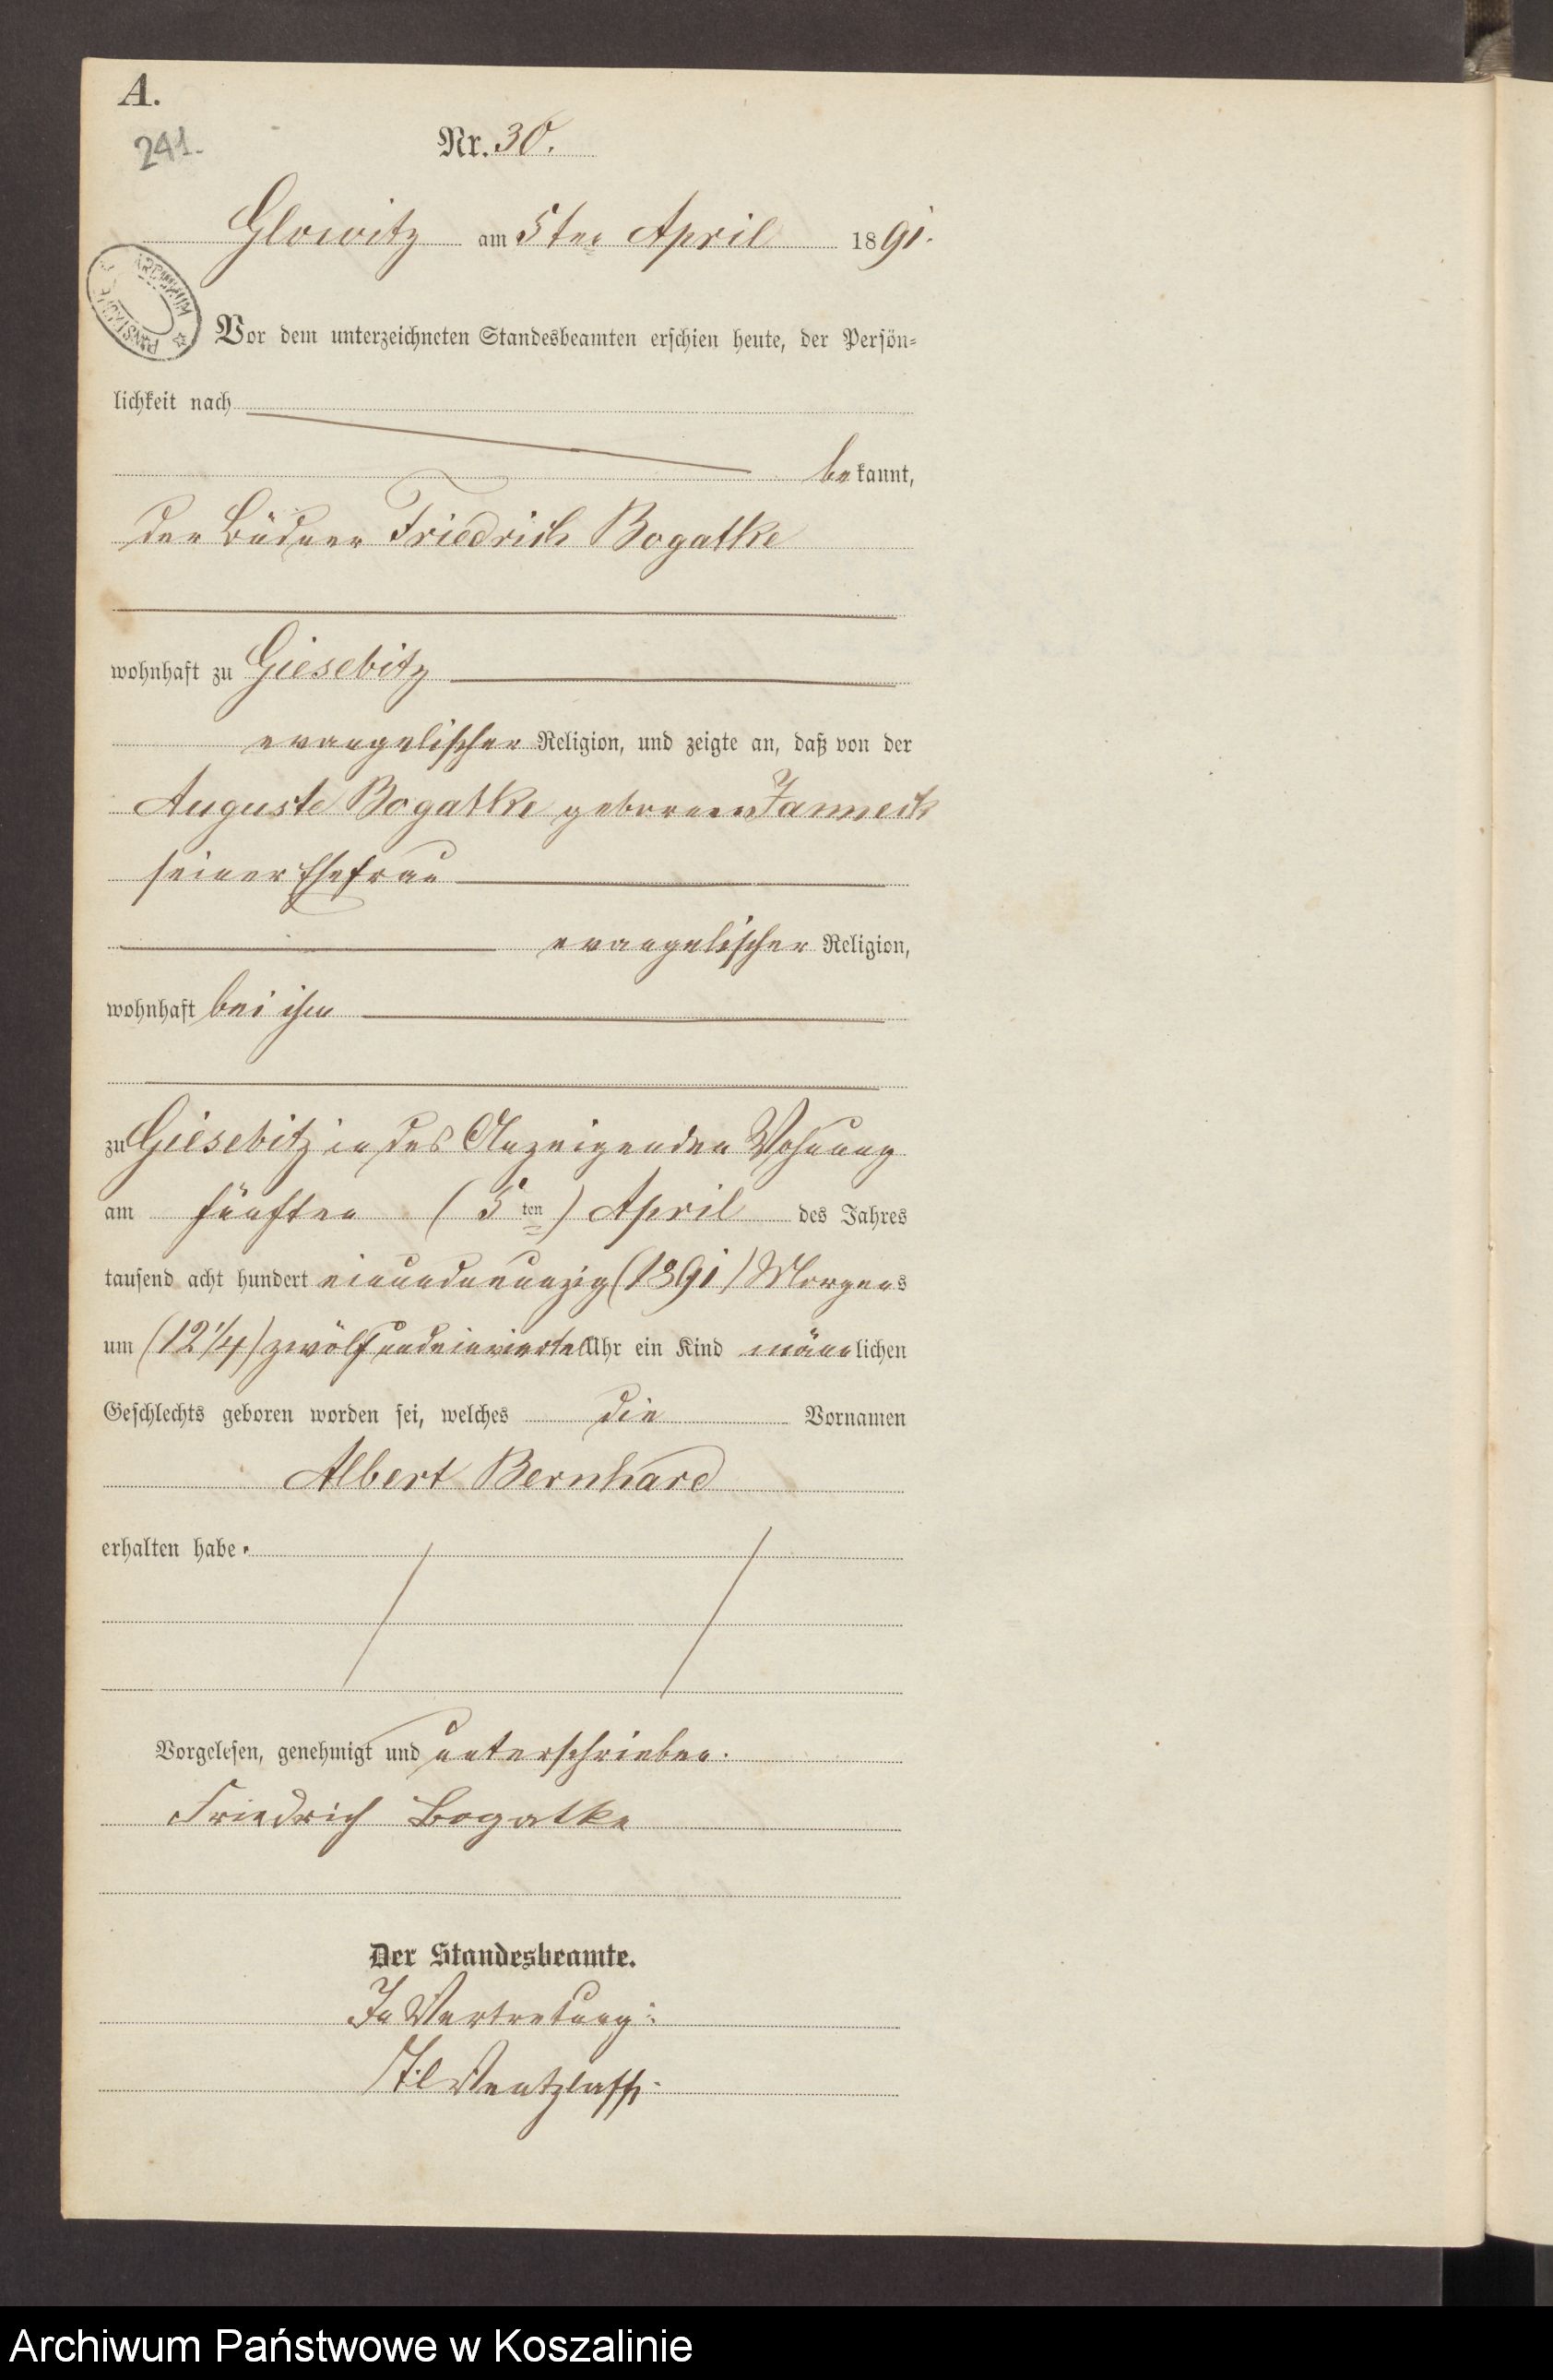 A.
241.
Nr. 30.
Glowitz am 5ten April 1891.
ARCHIWUM PAŃSTWOWE
Vor dem unterzeichneten Standesbeamten erschien heute, der Persön-
lichkeit nach
bekannt,
der Büdner Friedrich Bogatke
wohnhaft zu Giesebitz
evangelischer Religion, und zeigte an, daß von der
Auguste Bogatke geborenen Janneck
seiner Ehefrau
evangelischer Religion,
wohnhaft bei ihm
zu Giesebitz in des Anzeigenden Wohnung
am fünften (5ten) April des Jahres
tausend acht hundert einundneunzig (1891) Morgens
um (12 1/4) zwölf und ein viertel Uhr ein Kind männlichen
Geschlechts geboren worden sei, welches die Vornamen
Albert Bernhard
erhalten habe.
Vorgelesen, genehmigt und unterschrieben.
Friedrich Bogatke
Der Standesbeamte.
In Vertretung:
Wentzlaff.
Archiwum Państwowe w Koszalinie